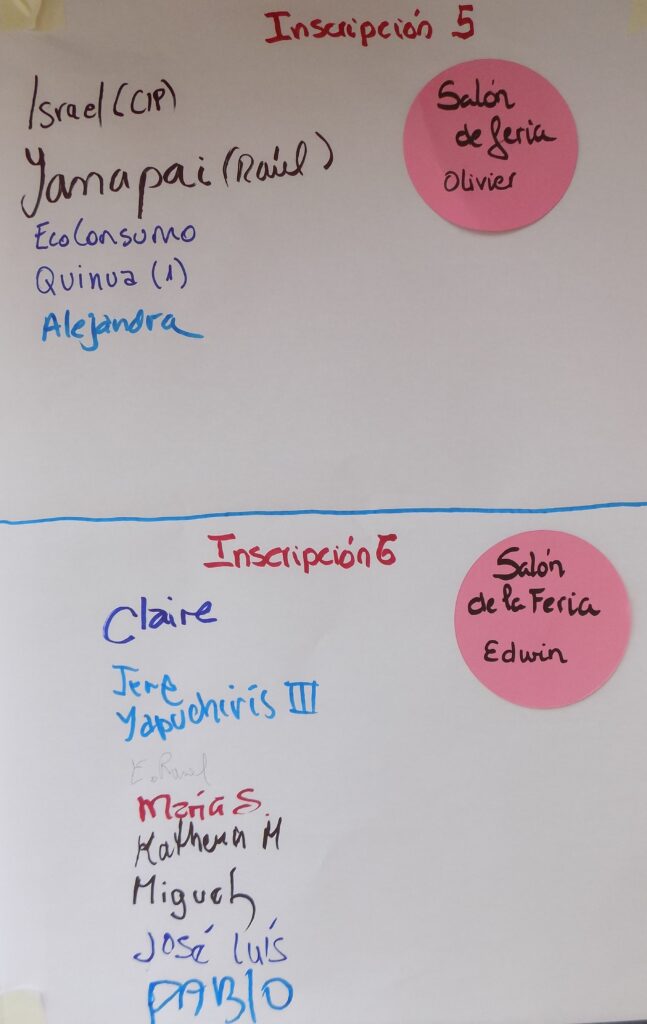 Inscripción 5
Israel (CIP)
Yanapai (Raúl)
EcoConsumo
Quinua (1)
Alejandra
Salón
de feria
Olivier
Inscripción 6
Claire
Jere
Yapuchiris III
E. Raul
María S.
Katherin M
Miguel
José Luís
PABLO
Salón
de la Feria
Edwin